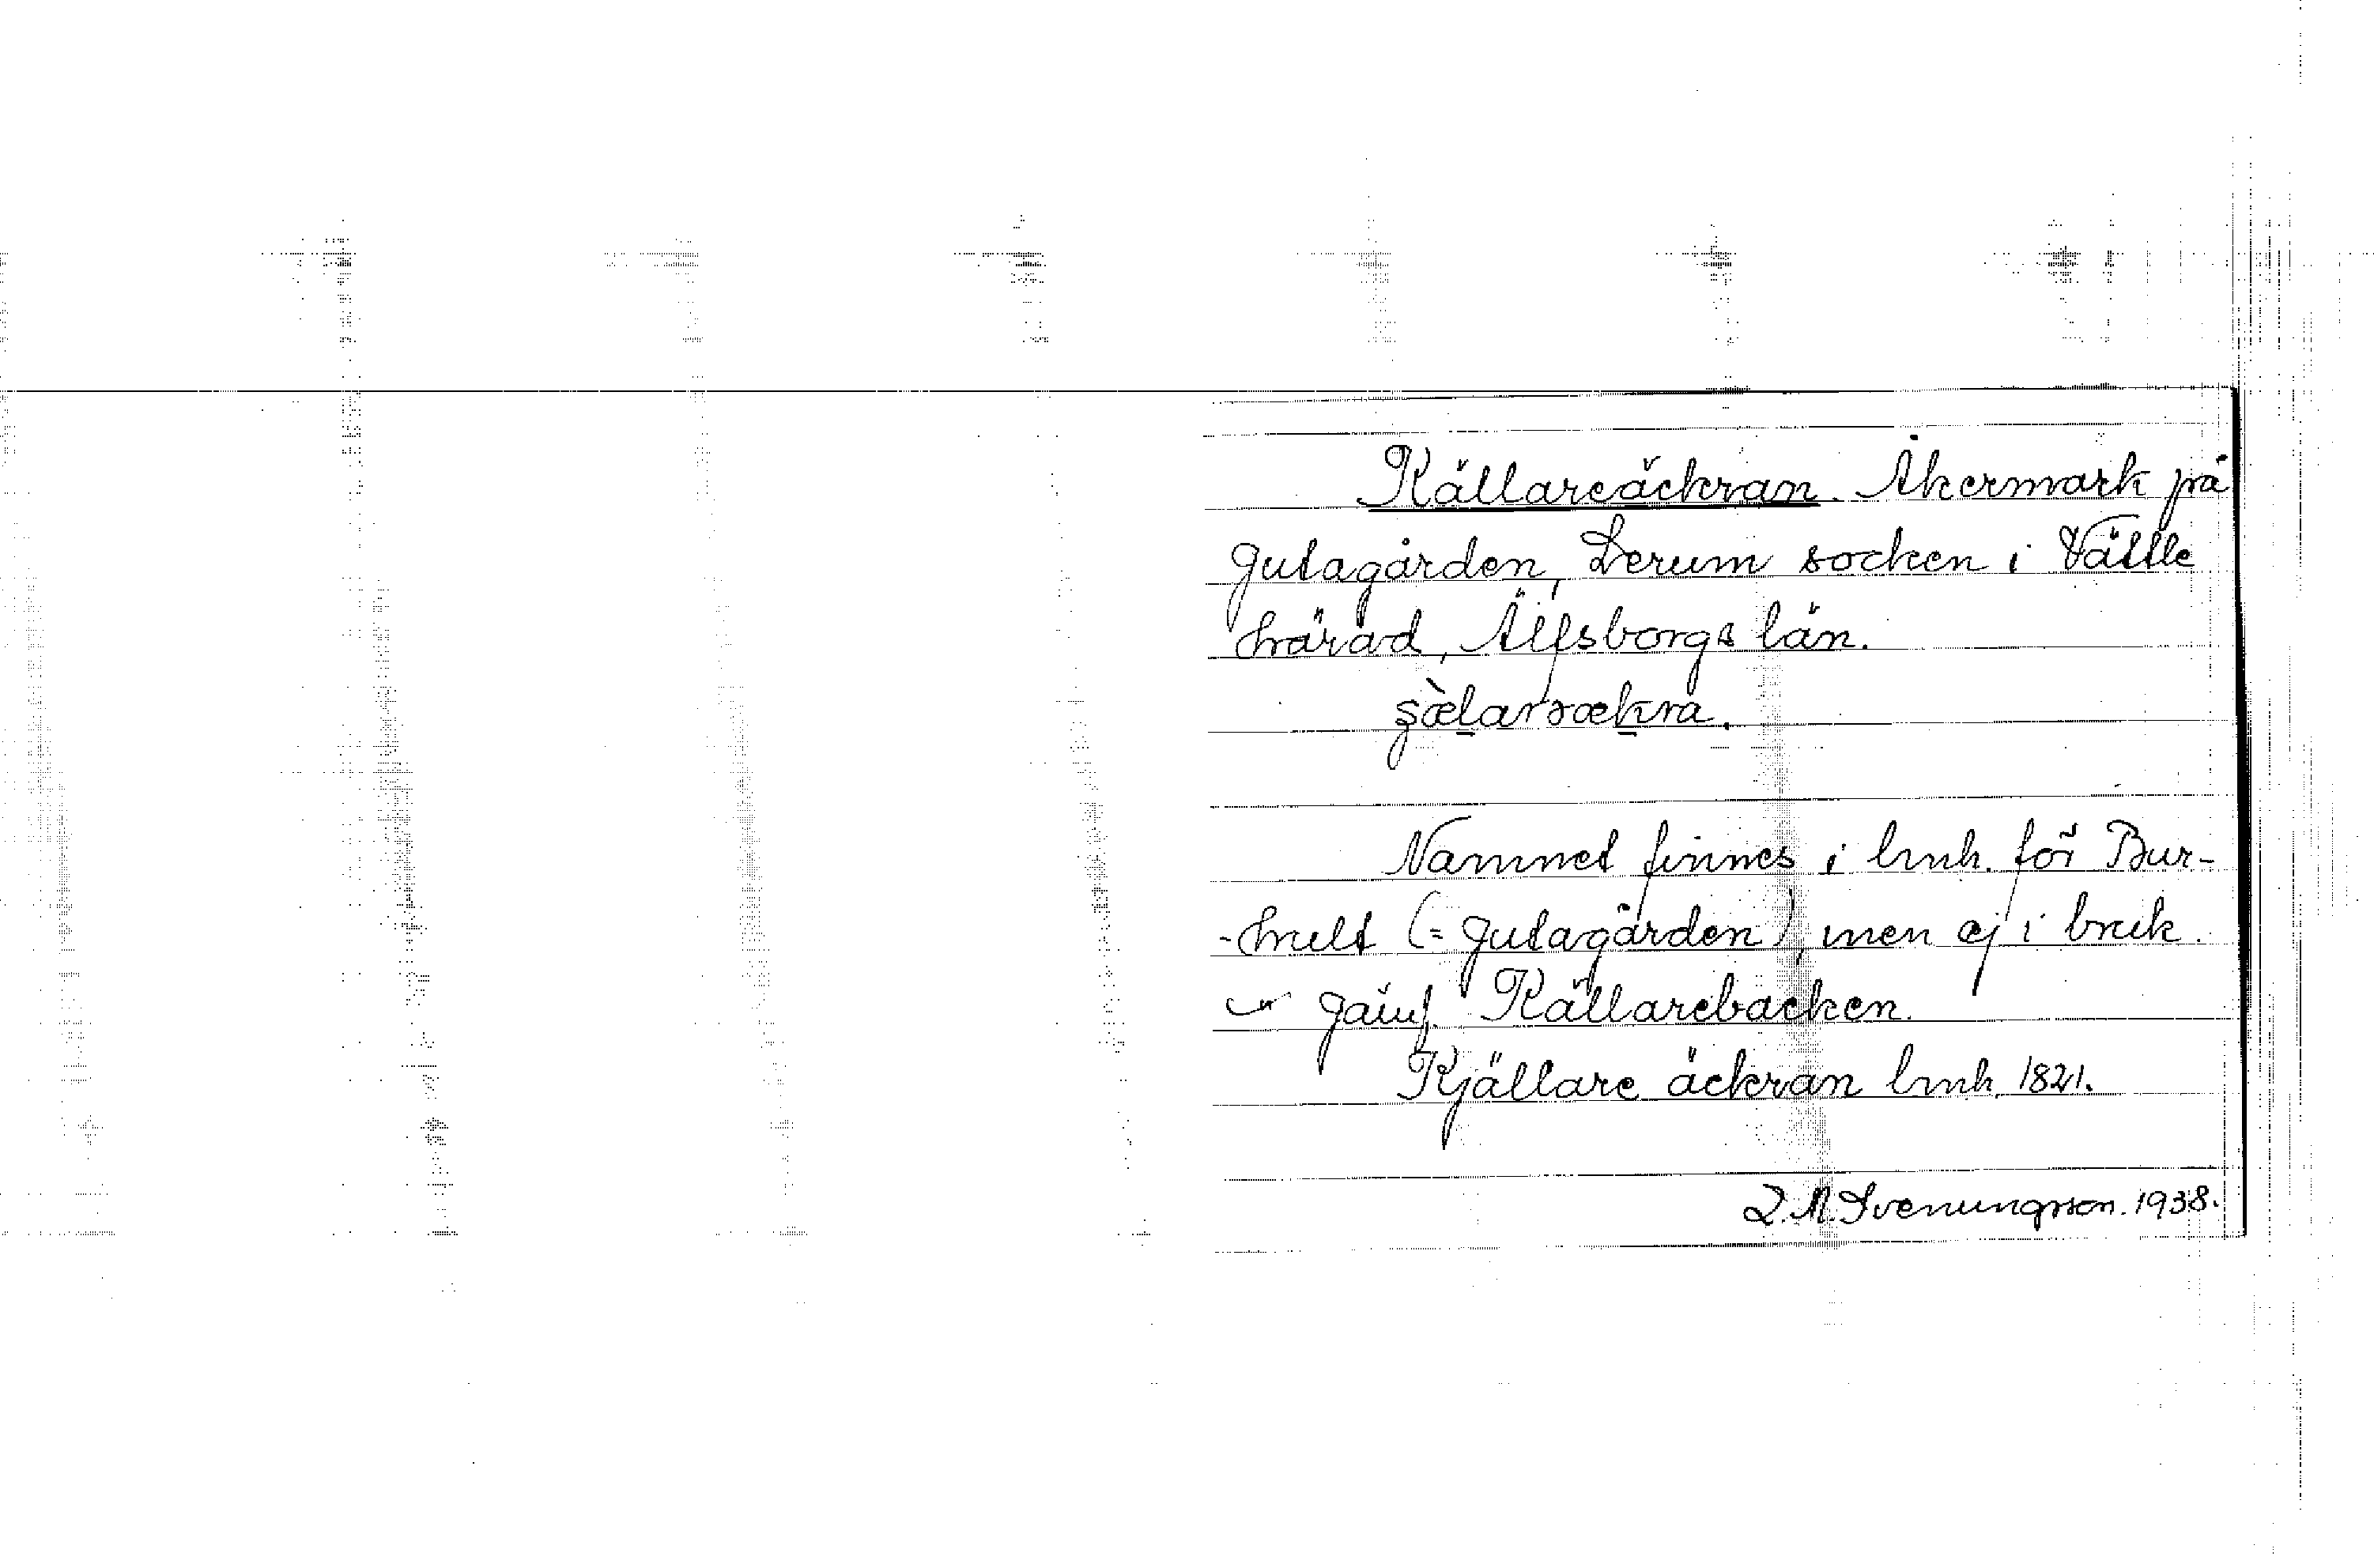 Källareäckran. Åkermark på
Gutagården, Lerum socken i Vättle
härad, Älfsborgs län.
Namnet finnes i lmh. för Bur-
-hult (= Gutagården), men ej i bruk.
Jämf. Källarebacken.
Kjällare äckran lmh. 1821.
L. M. Svenungsson. 1938.